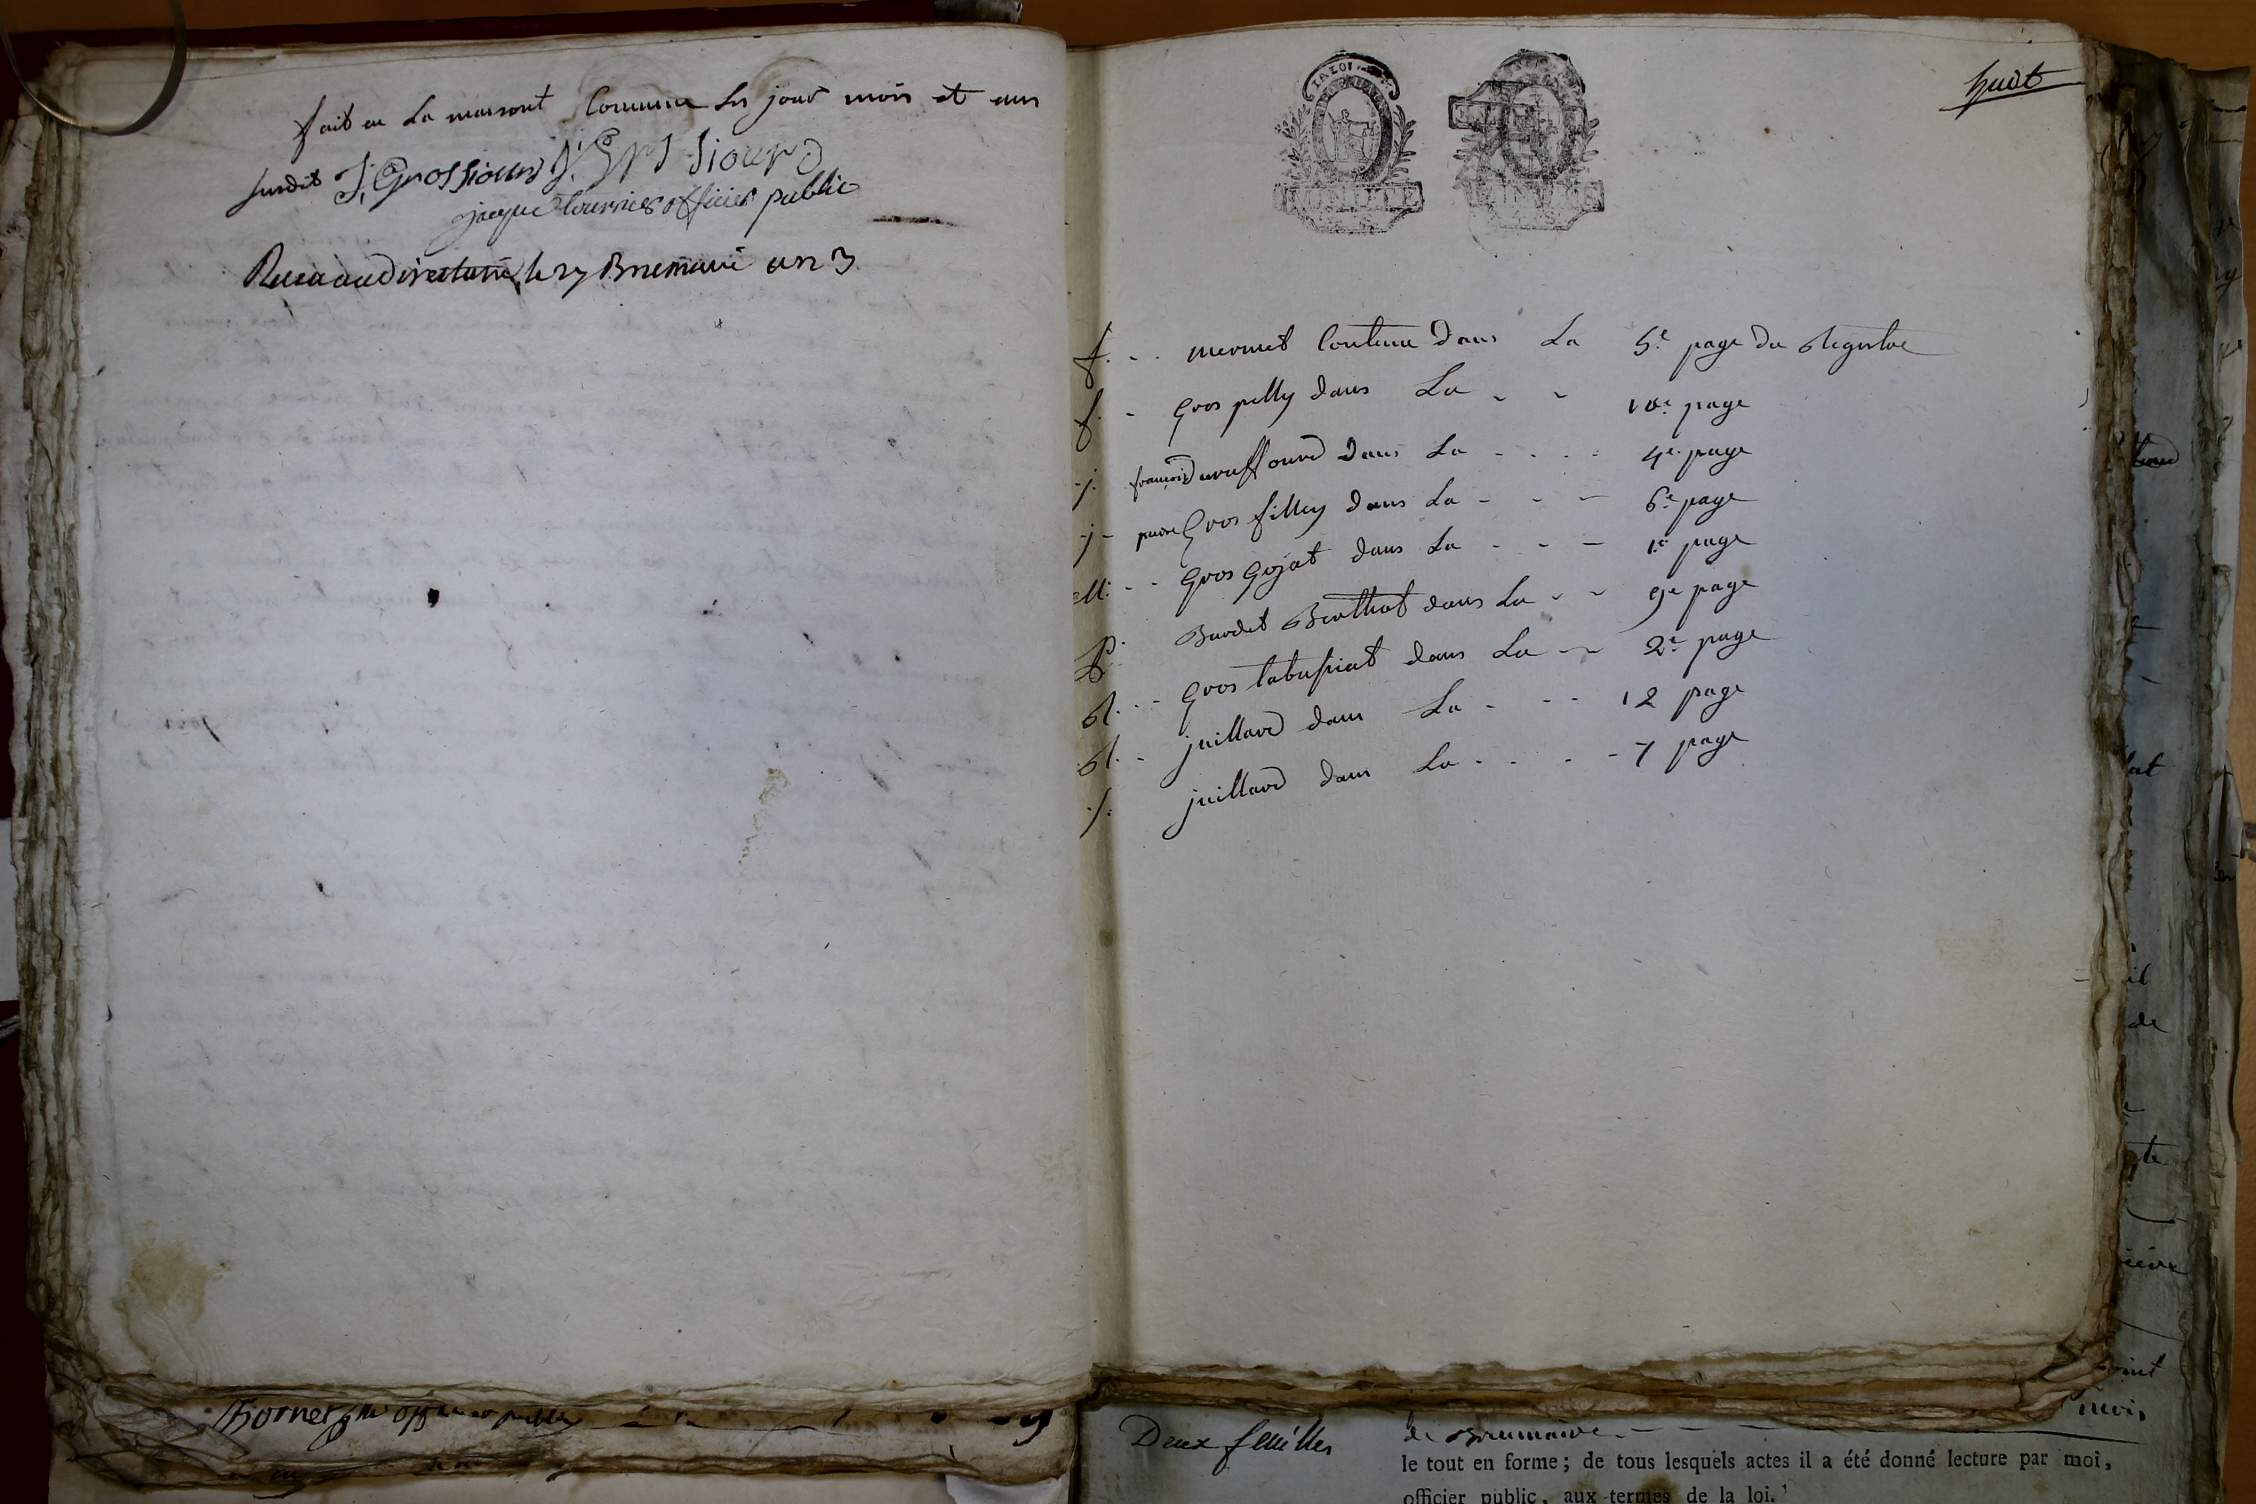 fait en La maisont Commune Les jour mois et ans
susdit J. Grossiourd J. Grossiourd
jacque tournier officier public
Recu au Directoire le 27 Brumaire an 3
huit
LA LOI
f. . . mermet Contenu dans La 5e page du Registre
f. - Gros pelly dans La - - 10e page
j. françois duraffourd dans La - . . . 4e page
j - pierre Gros filley dans La - - - 6e page
M. - - Gros Gojat dans La - - - 1e page
P. Burdet Berthet dans La - - 9e page
R. . . - Gros tabussiat dans La - - 2e page
R. . - juillard dans La - - - 12 page
j. juillard dans La - - - - 7 page
officier public
Deux feuilles
de Brumaire
mois
le tout en forme; de tous lesquels actes il a été donné lecture par moi,
officier public, aux termes de la loi.